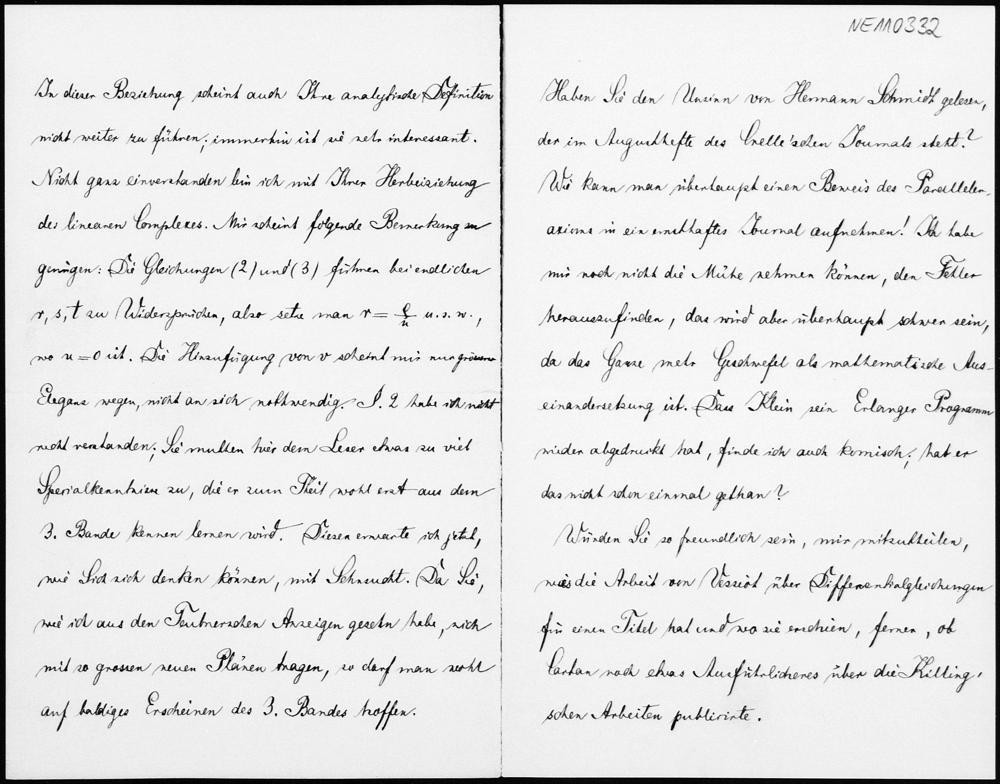 In dieser Beziehung scheint auch Ihre analytische Definition
nicht weiter zu führen; immerhin ist sie sehr interessant.
Nicht ganz einverstanden bin ich mit Ihrer Herbeiziehung
des linearen Complexes. Mir scheint folgende Bemerkung zu
genügen: Die Gleichungen (2) und (3) führen bei endlichen
r, s, t zu Widersprüchen, also setze man r = ρ/u u. s. w.,
wo u = 0 ist. Die Hinzufügung von v scheint mir nur grösserer
Eleganz wegen, nicht an sich nothwendig. S. 2 habe ich nicht
recht verstanden; Sie muthen hier dem Leser etwas zu viel
Specialkenntnisse zu, die er zum Theil wohl erst aus dem
3. Bande kennen lernen wird. Diesen erwarte ich jetzt,
wie Sie sich denken können, mit Sehnsucht. Da Sie,
wie ich aus den Teubnerschen Anzeigen gesehn habe, sich
mit so grossen neuen Plänen tragen, so darf man wohl
auf baldiges Erscheinen des 3. Bandes hoffen.
NE110332
Haben Sie den Unsinn von Hermann Schmidt gelesen,
der im Augusthefte des Crelle'schen Journals steht?
Wie kann man überhaupt einen Beweis des Parallelen-
axioms in ein ernsthaftes Journal aufnehmen! Ich habe
mir noch nicht die Mühe nehmen können, den Fehler
herauszufinden, das wird aber überhaupt schwer sein,
da das Ganze mehr Geschwefel als mathematische Aus-
einandersetzung ist. Dass Klein sein Erlanger Programm
wieder abgedruckt hat, finde ich auch komisch; hat er
das nicht schon einmal gethan?
Würden Sie so freundlich sein, mir mitzutheilen,
was die Arbeit von Vessiot über Differentialgleichungen
für einen Titel hat und wo sie erschien, ferner, ob
Cartan noch etwas Ausführlicheres über die Killing'
schen Arbeiten publicirte.